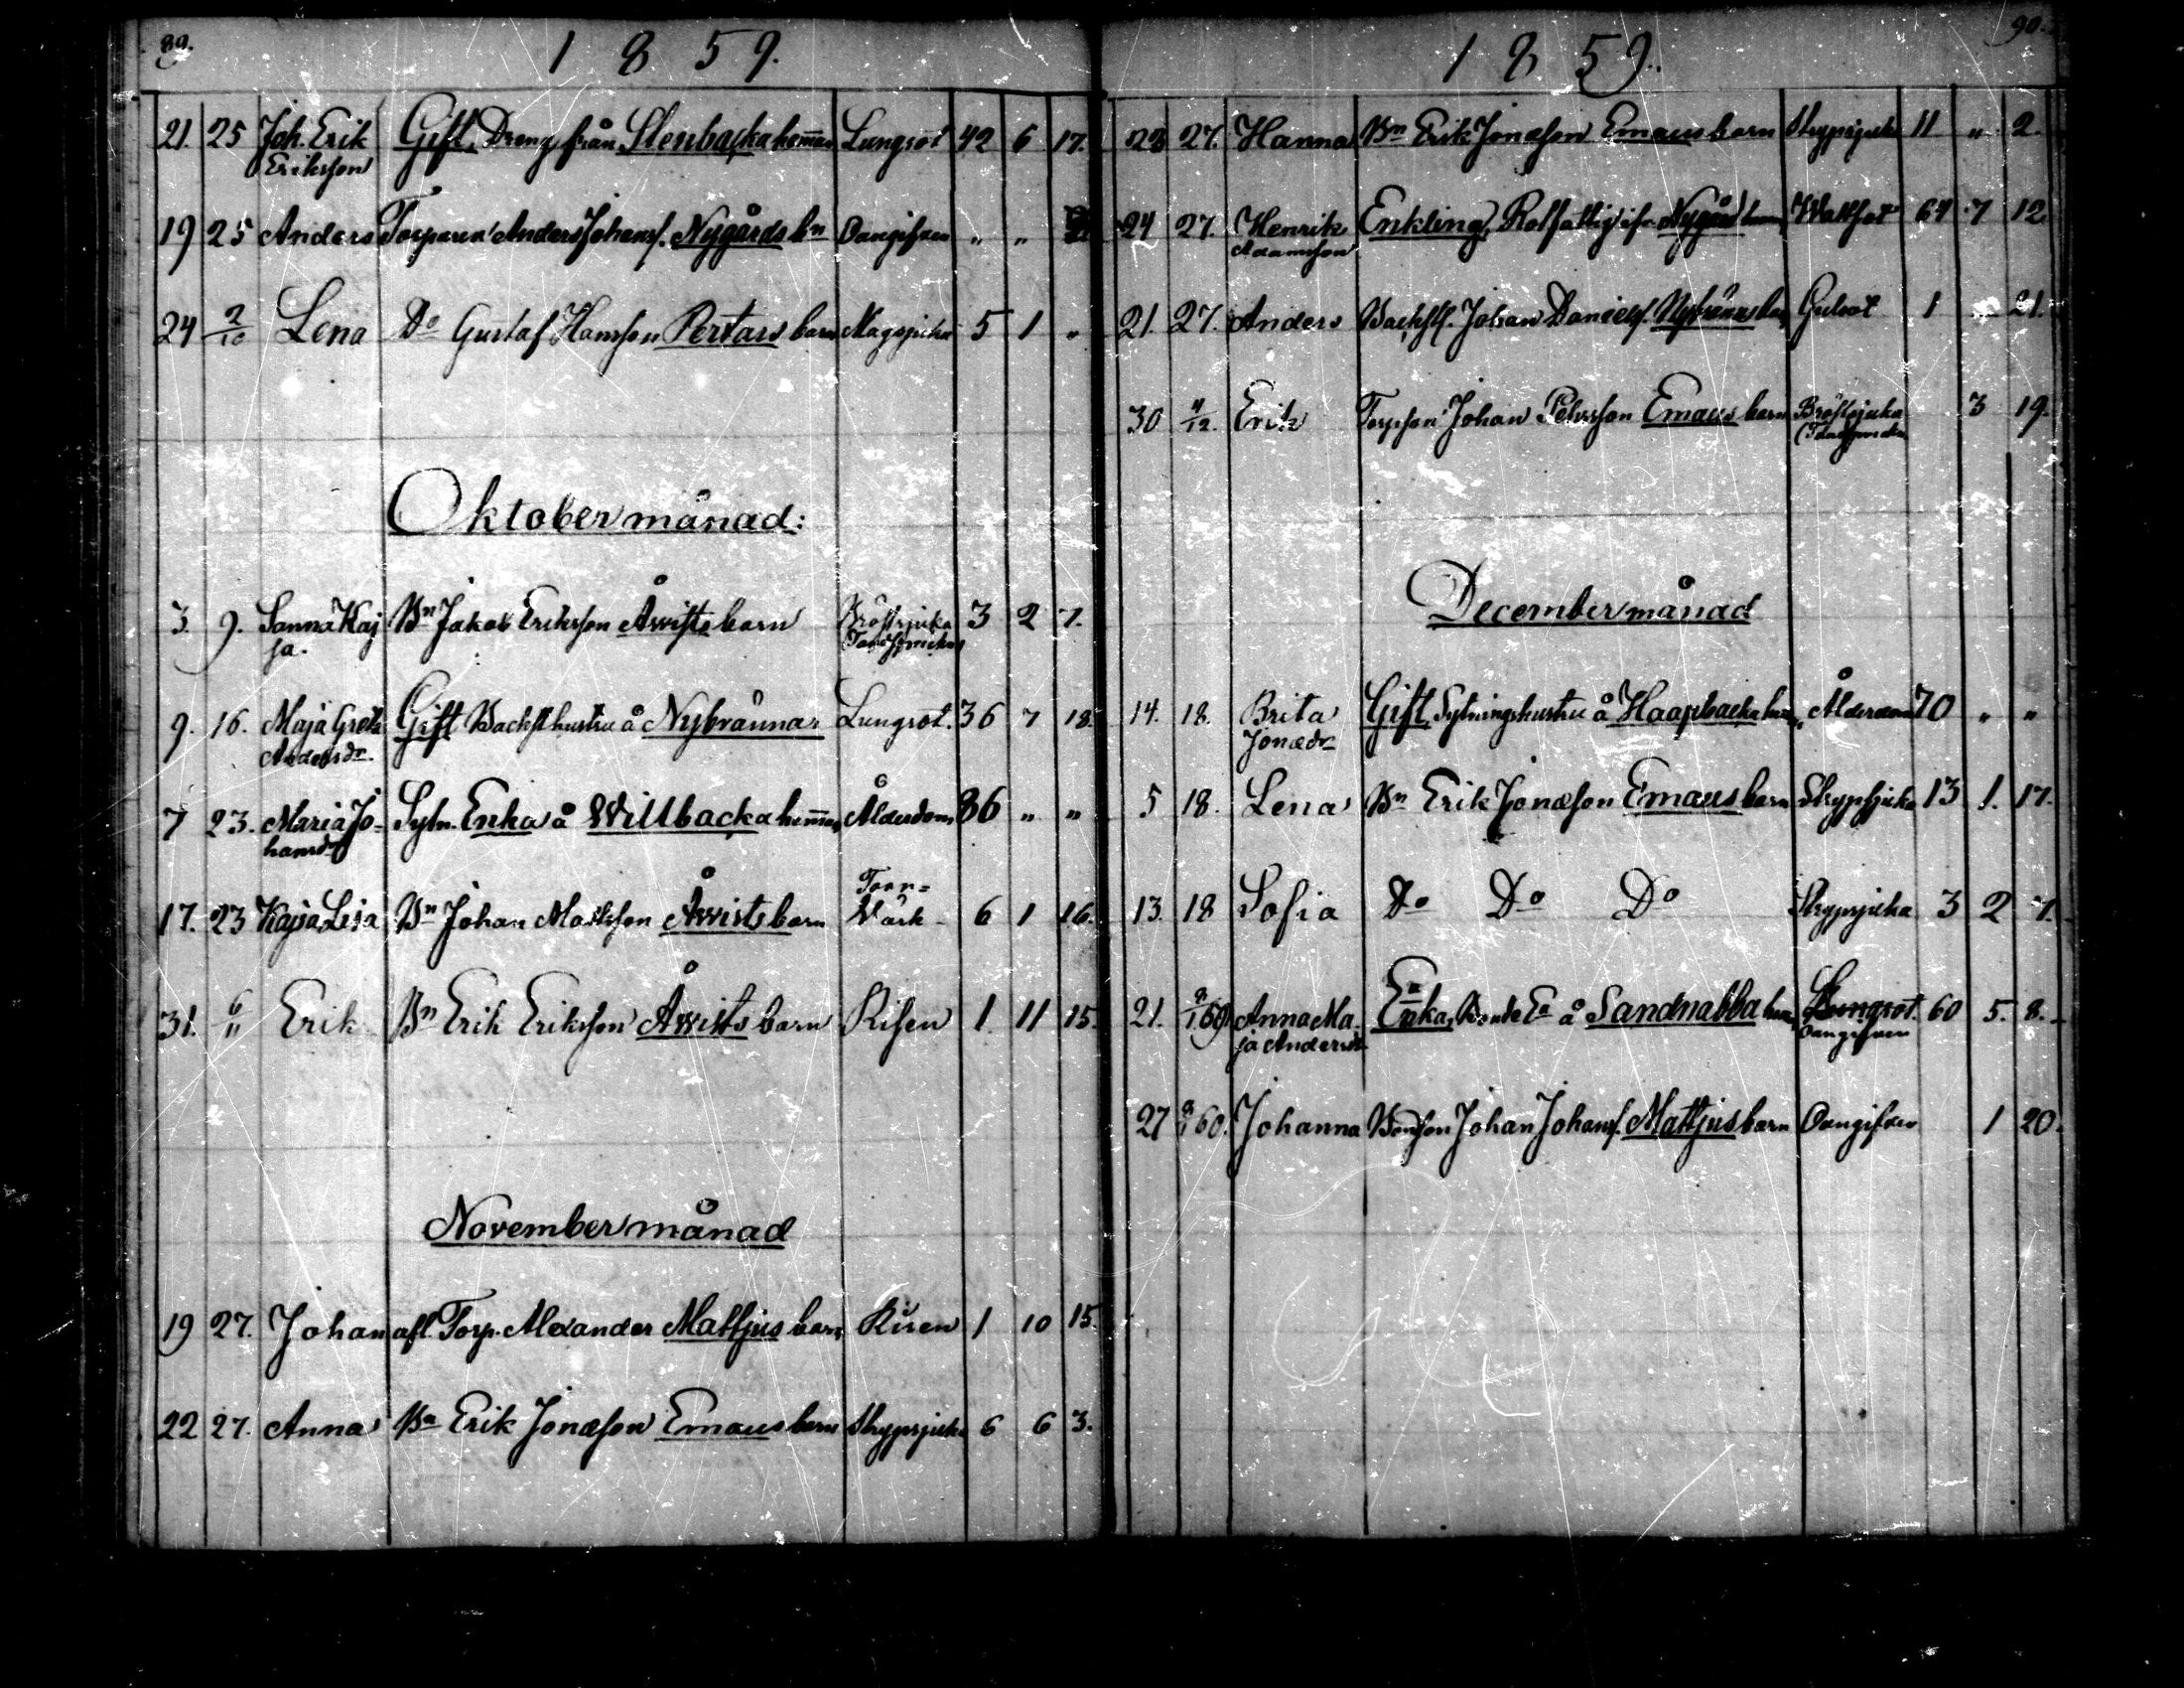 89.
1859.
21. 25 Joh. Erik Gift, Dreng från Stenbacka hemman Lungsot 42 6 17.
Eriksson
19 25 Anders Torparen Anders Johanss. Nygårds bn Oangifven " "
24 2/10 Lena Do Gustaf Hansson Pertars barn Magsjuka 5 1 "
Oktober månad:
3. 9. Sanna Kaj Bn Jakob Eriksson Åwists barn Bröstsjuka 3 2 7.
sa.
9. 16. Maja Greta Gift Backst hustru å Nybränna. Lungsot. 36 7 18.
Andersdr.
7 23. Maria Jo- Sytn. Enka å Willbacka hemman Ålderdom 86 " "
hansdr
Torr-
17. 23 Kajsa Lisa Bn Johan Mattsson Åwists barn Värk 6 1 16.
31. 6/11 Erik Bn Erik Eriksson Åwists barn Risen 1 11 15.
November månad
19 27. Johan afl. Torp. Alexander Mattjus barn Risen 1 10 15.
22 27. Anna Bn Erik Jonasson Emaus barn Strypsjuka 6 6 3.
90.
1859.
23 27. Hanna Bn Erik Jonasson Emaus barn Strypsjuka 11 " 2.
24 27. Henrik Enkling, Rotfattig ifr. Nygård hemm Wattsot 64 7 12
Adamsson
21. 27. Anders Backst. Johan Daniels. Nybränna bar Gulsot 1 " 21.
30 4/12. Erik Torpson Johan Pehrsson Emaus barn Bröstsjuka 3 19.
December månad
14. 18. Brita Gift, Sytningshustru å Haapbacka hem. Ålderdom 70 " "
Jonædr
5 18. Lena Bn Erik Jonæson Emaus barn Strypsjuka 13 1. 17.
13. 18 Sofia Do Do Do Strypsjuka 3 2 7.
21. Anna Ma- Enka, Bonde Ea å Sandnabba hem Lungsot 60 5. 8.
ja Andersdr Oangifven
27 8/1 60. Johanna Bonson Johan Johans. Mattjus barn Oangifven 1 20.